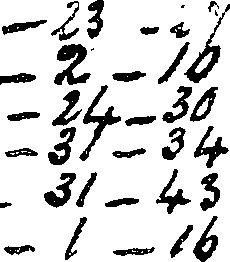 — 23 —
— 2 — 10
— 24 — 30
— 31 — 34
31 — 43
— 1 — 16